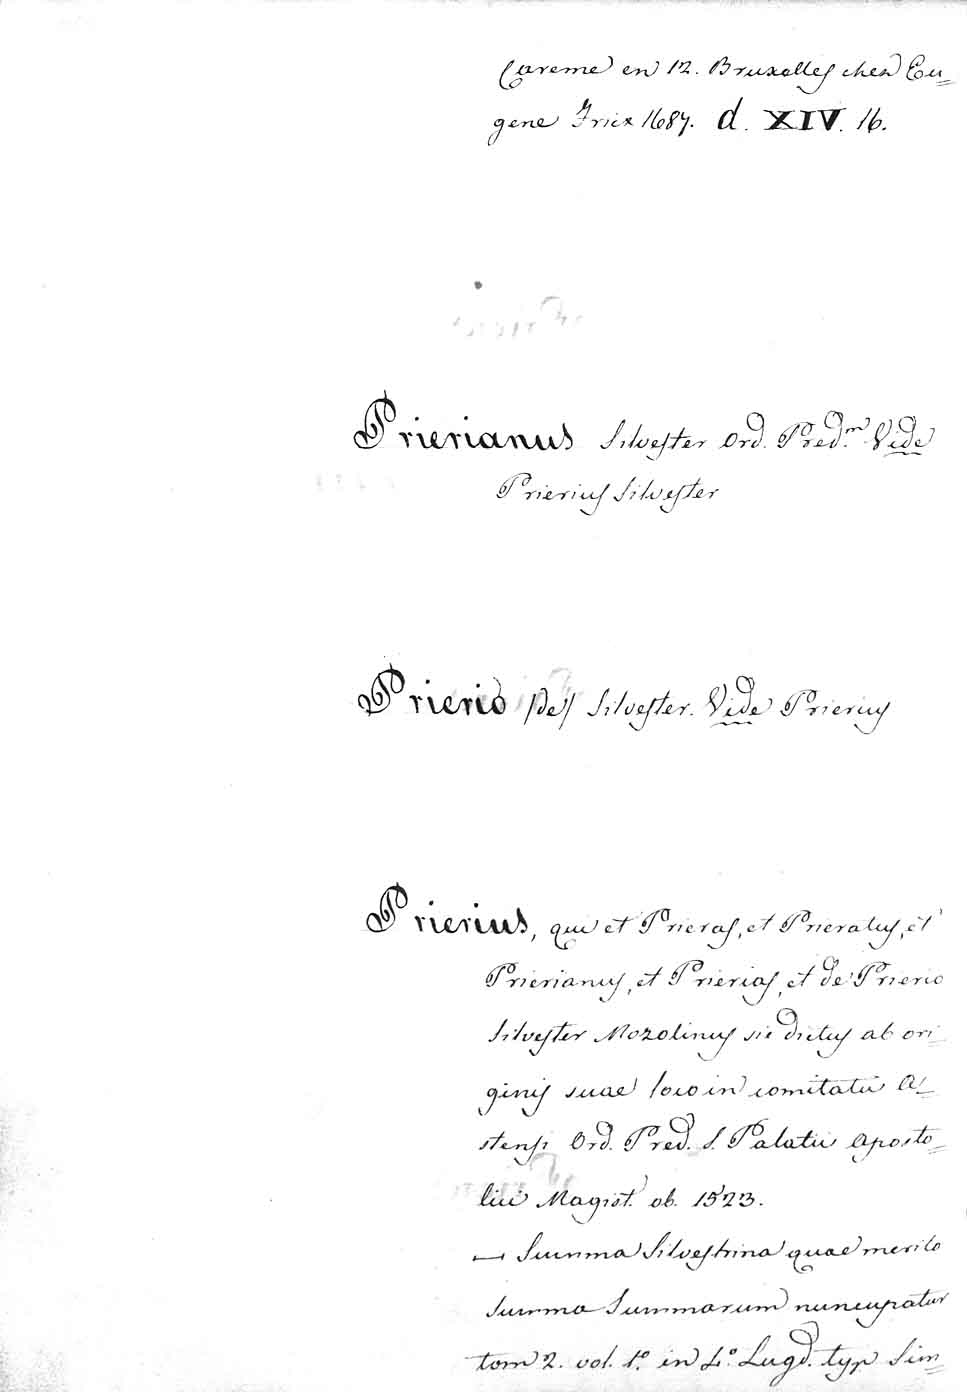 Careme en 12. Bruxelles chez Eu=
gene Fricx 1687. d. XIV. 16.
Prierianus Silvester Ord. Pred.m Vide
Prierius Silvester
Prierio /de/ Silvester. Vide Prierius
Prierius, qui et Prieras, et Prieratus, et
Prierianus, et Prierias, et de Prierio
Silvester Mozolinus sic dictus ab ori=
ginis suae loco in comitatu A=
stensi Ord. Pred. S. Palatii Aposto=
lici Magist. ob. 1523.
— Summa Silvestrina quae merito
Summa Summarum nuncupatur
tom 2. vol. 1.° in 4.° Lugd. typ Sim